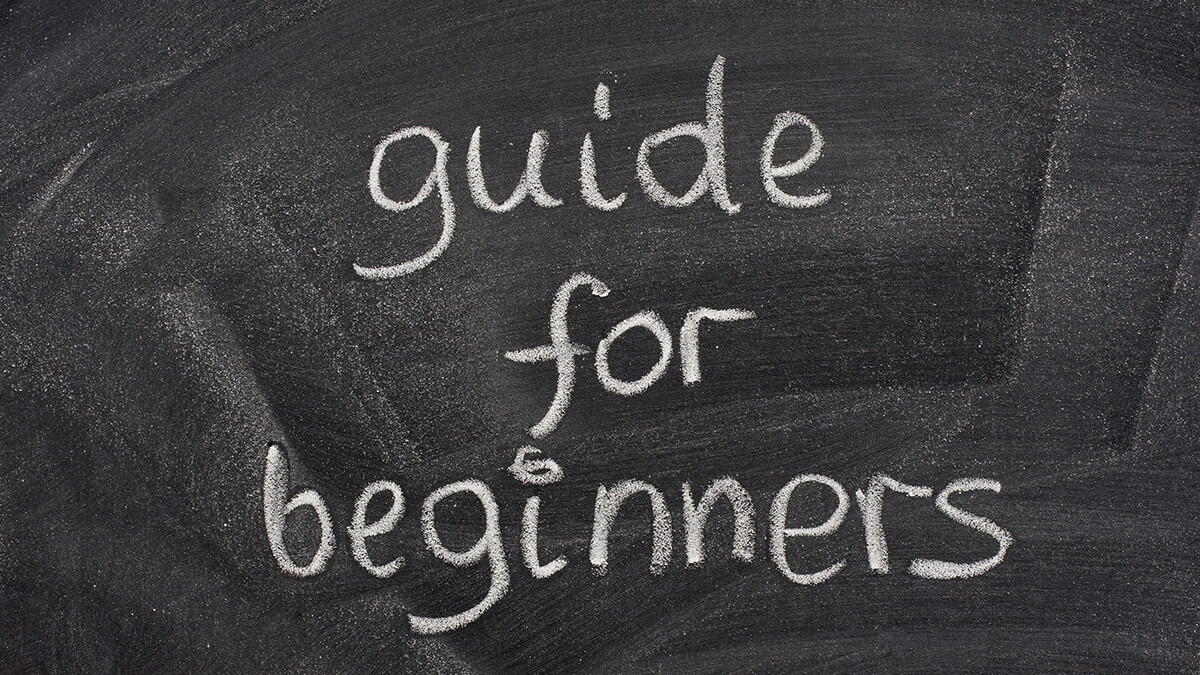 guide
for
beginners